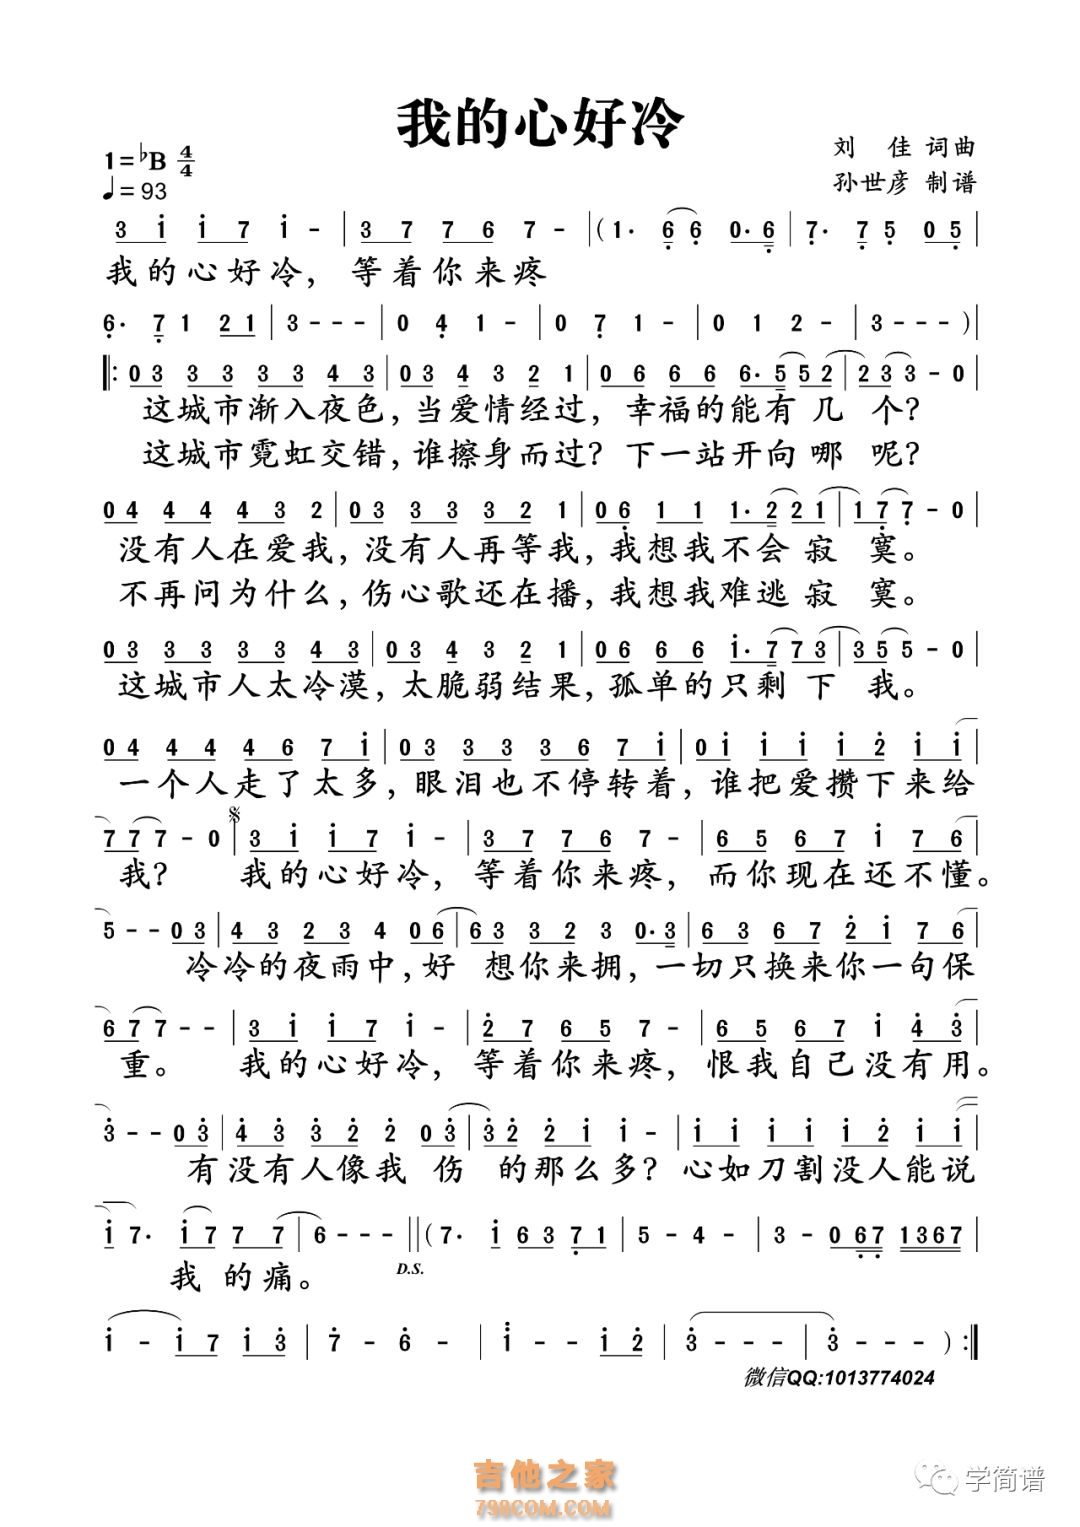 我的心好冷
1=♭B 4/4
♩=93
刘 佳 词曲
孙世彦 制谱
3 i i 7 i - | 3 7 7 6 7 - | (1· 6 6 0· 6 | 7· 7 5 0 5 |
我的心好冷, 等着你来疼
6· 7 1 2 1 | 3 - - - | 0 4 1 - | 0 7 1 - | 0 1 2 - | 3 - - - ) |
‖: 0 3 3 3 3 3 4 3 | 0 3 4 3 2 1 | 0 6 6 6 6· 5 5 2 | 2 3 3 - 0
这城市渐入夜色, 当爱情经过, 幸福的能有几个?
这城市霓虹交错, 谁擦身而过? 下一站开向哪呢?
0 4 4 4 4 3 2 | 0 3 3 3 3 2 1 | 0 6 1 1 1· 2 2 1 | 1 7 7 - 0 |
没有人在爱我, 没有人再等我, 我想我不会寂寞。
不再问为什么, 伤心歌还在播, 我想我难逃寂寞。
0 3 3 3 3 3 4 3 | 0 3 4 3 2 1 | 0 6 6 6 i· 7 7 3 | 3 5 5 - 0 |
这城市人太冷漠, 太脆弱结果, 孤单的只剩下我。
0 4 4 4 4 6 7 i | 0 3 3 3 3 6 7 i | 0 i i i i 2 i i |
一个人走了太多, 眼泪也不停转着, 谁把爱攒下来给
7 7 7 - 0 | 3 i i 7 i - | 3 7 7 6 7 - | 6 5 6 7 i 7 6 |
我? 我的心好冷, 等着你来疼, 而你现在还不懂。
5 - - 0 3 | 4 3 2 3 4 0 6 | 6 3 3 2 3 0· 3 | 6 3 6 7 2 i 7 6 |
冷冷的夜雨中, 好想你来拥, 一切只换来你一句保
6 7 7 - - | 3 i i 7 i - | 2 7 6 5 7 - | 6 5 6 7 i 4 3 |
重。 我的心好冷, 等着你来疼, 恨我自己没有用。
3 - - 0 3 | 4 3 3 2 2 0 3 | 3 2 2 i i - | i i i i i 2 i i |
有没有人像我伤的那么多? 心如刀割没人能说
i 7· i 7 7 7 | 6 - - - ‖ (7· i 6 3 7 1 | 5 - 4 - | 3 - 0 6 7 1 3 6 7 |
我的痛。
D.S.
i - i 7 i 3 | 7 - 6 - | i - - i 2 | 3 - - - | 3 - - - ) :‖
微信QQ:1013774024
吉他之家
798COM.COM
学简谱